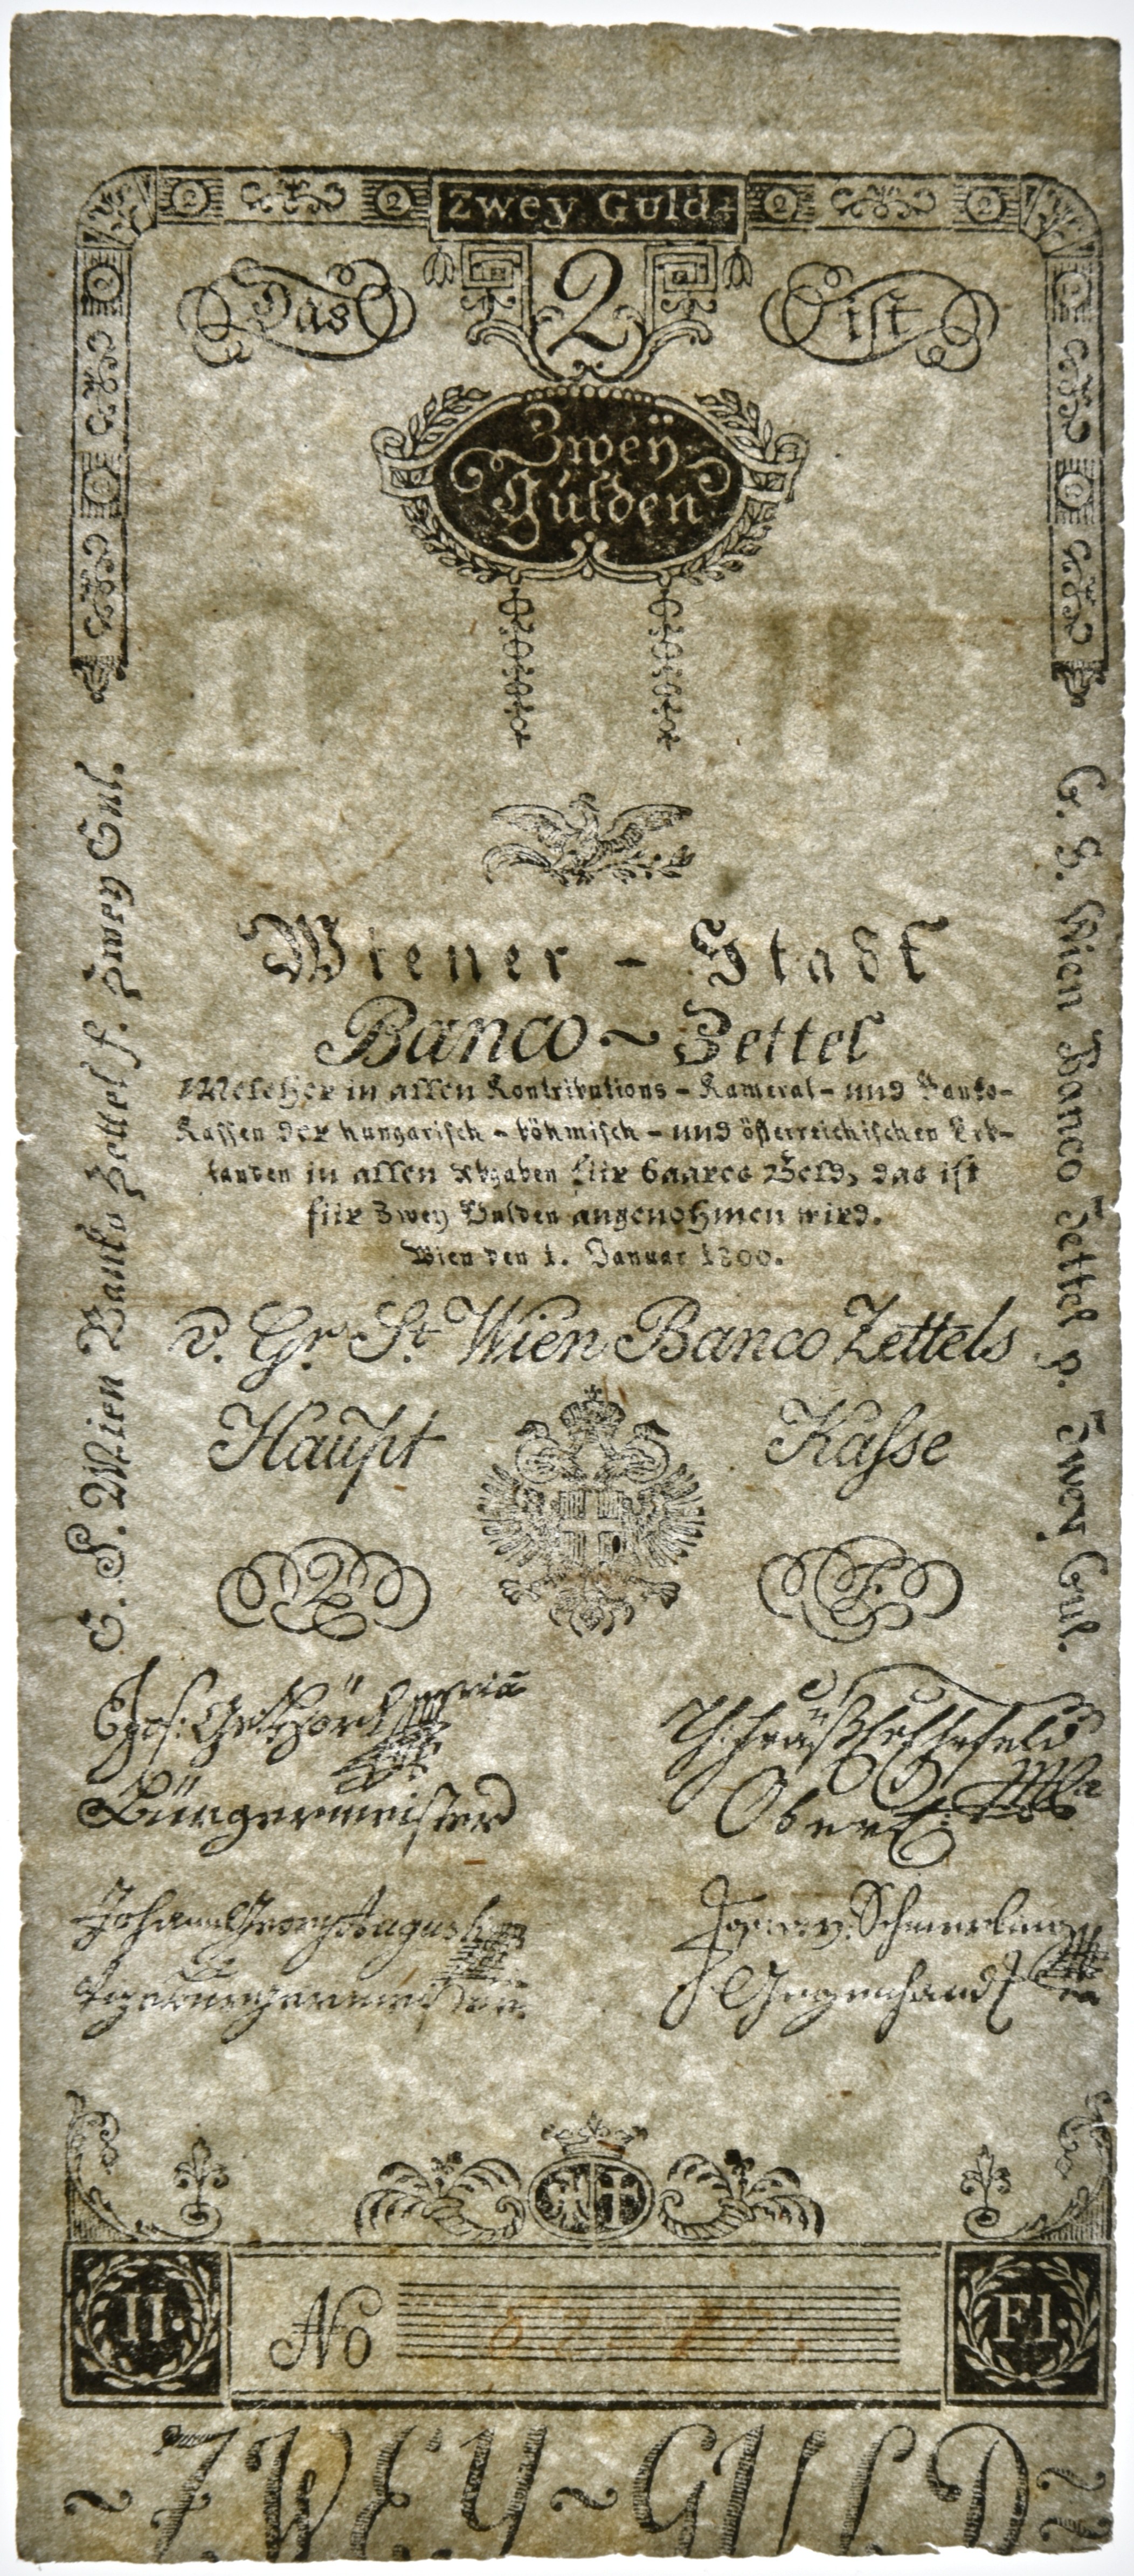 Zwey Guld:
Das 2 ist
Zweÿ
Gulden
Wiener - Stadt
Banco ~ Zettel
Welcher in allen Kontributions - Kameral - und Banko-
Kassen der hungarisch - böhmisch - und österreichischen Erb-
landen in allen Abgaben für baares Geld, das ist
für Zwey Gulden angenohmen wird.
Wien den 1. Januar 1800.
v. Gr. St. Wien Banco Zettels
Haupt Kasse
2 F.
Bürgermeister
Johann Georg Augusti
v. Schmerling
Gegenhand
II. Fl.
No
~ ZWEY ~ GULD ~
G. S. Wien Banko Zettel f. Zwey Gul.
G. S. Wien Banco Zettel p. Zwey Gul.